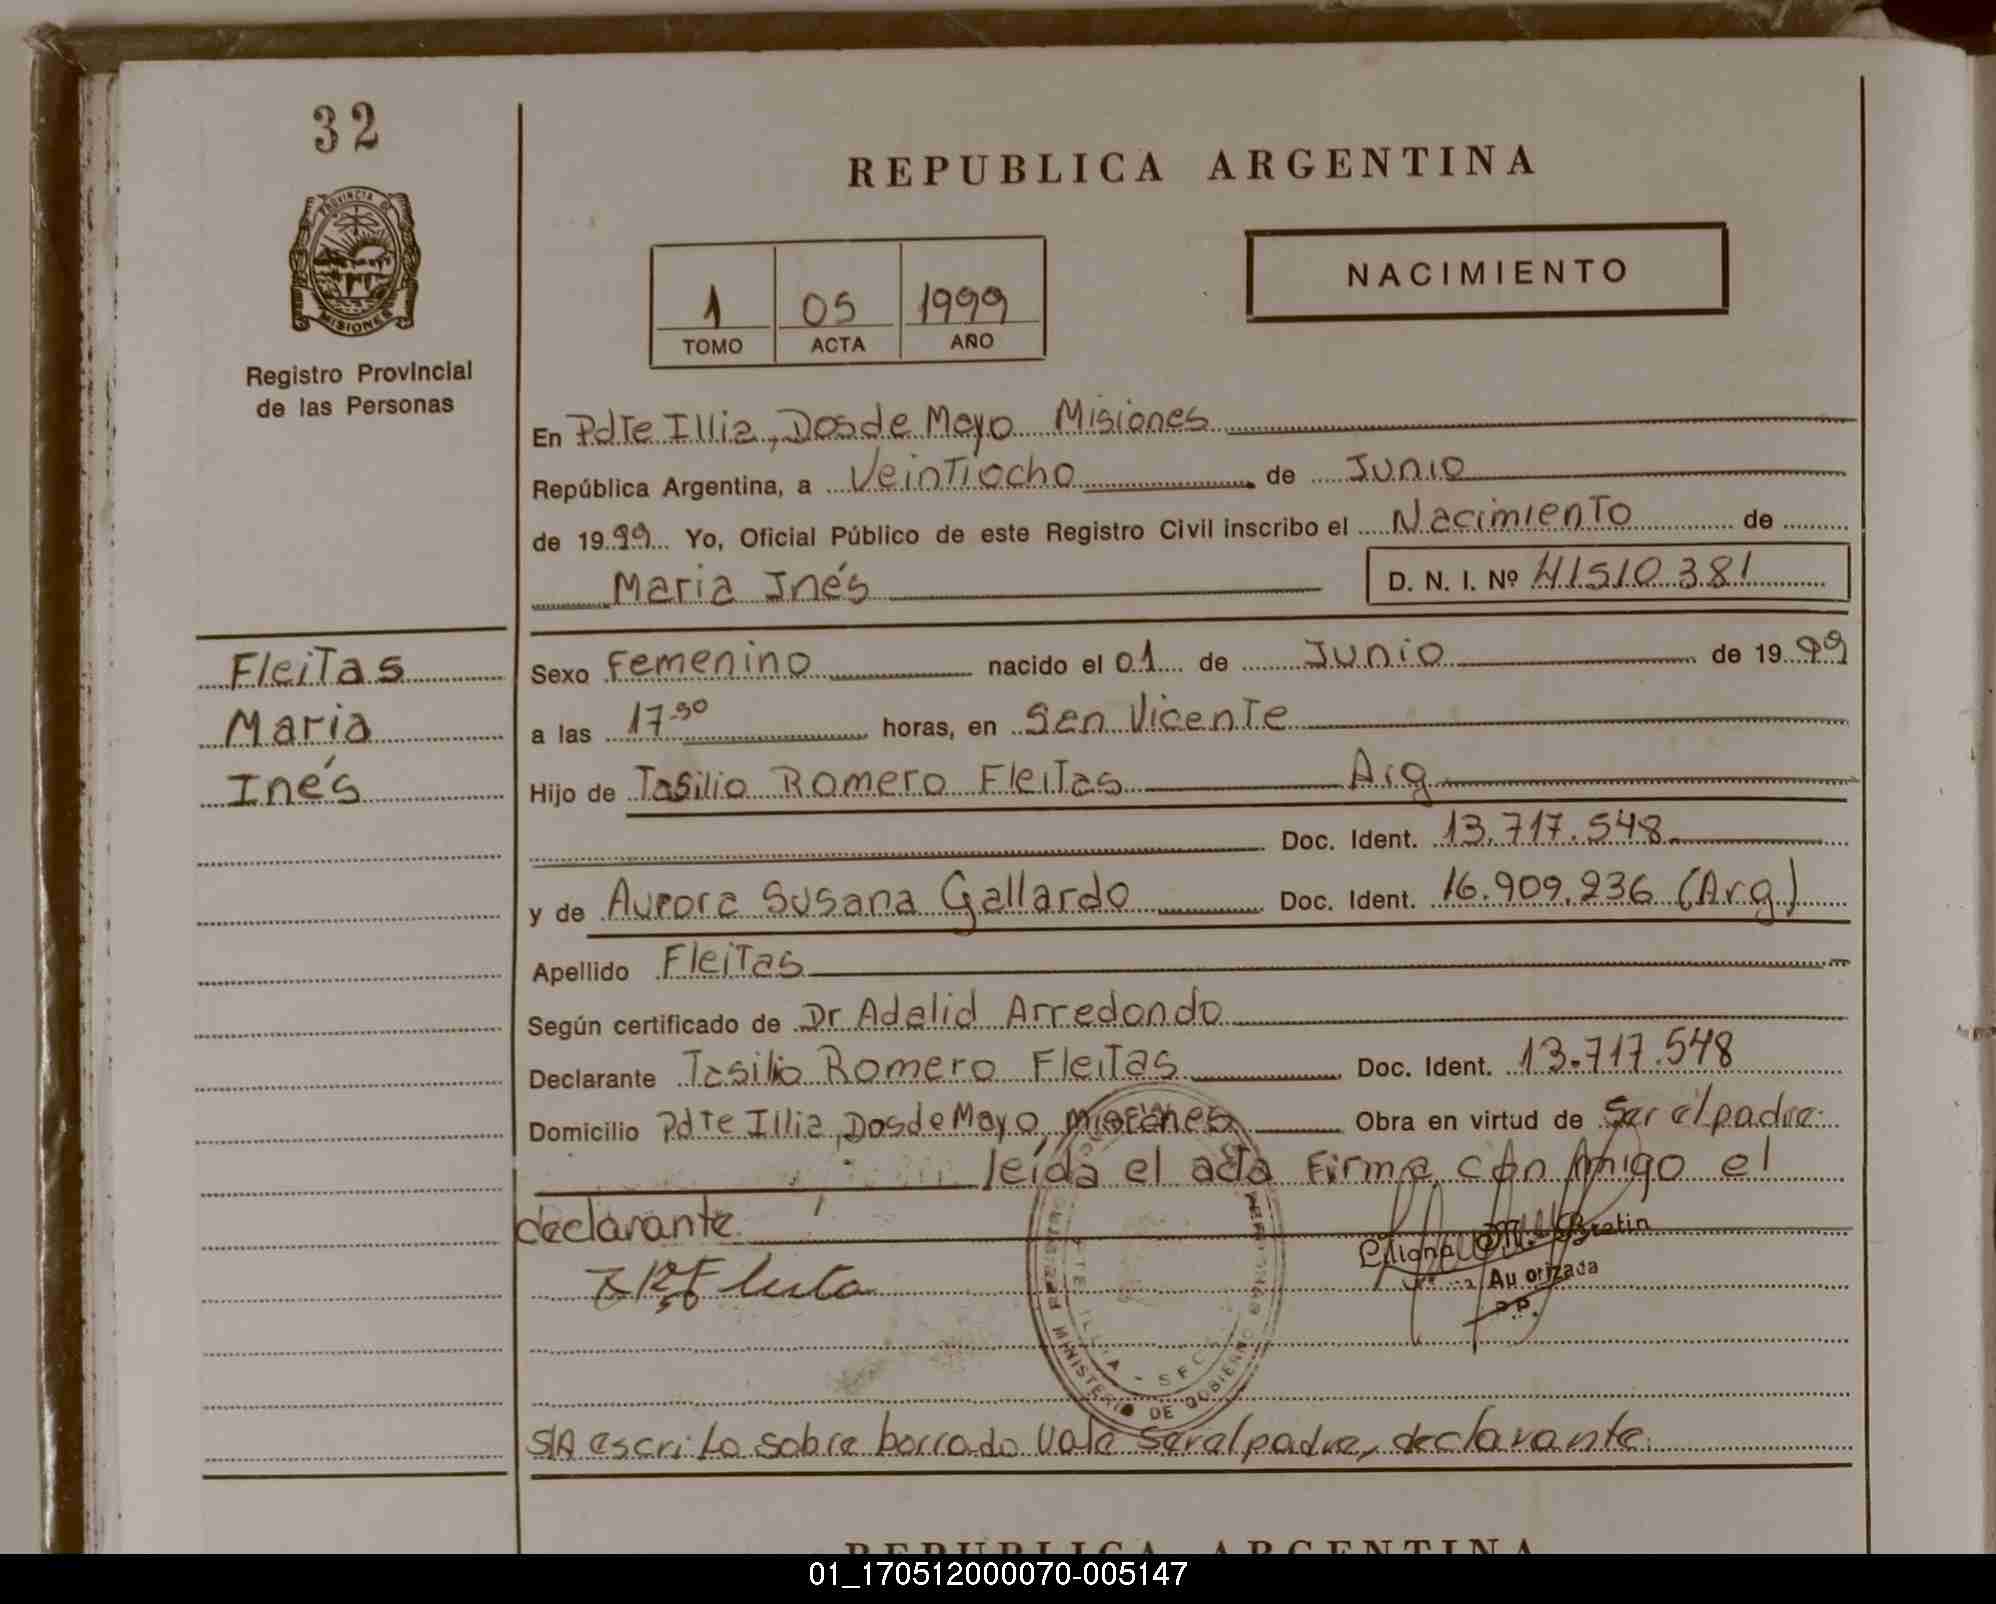 32
REPUBLICA ARGENTINA
PROVINCIA DE
MISIONES
Registro Provincial
de las Personas
NACIMIENTO
1 05 1999
TOMO ACTA AÑO
En Pdte Illia, Dos de Mayo Misiones
República Argentina, a Veintiocho de Junio
de 1999 Yo, Oficial Público de este Registro Civil inscribo el Nacimiento de
Maria Inés D. N. I. Nº 41510381
Fleitas
Maria
Inés
Sexo Femenino nacido el 01 de Junio de 1999
a las 17-30 horas, en San Vicente
Hijo de Tasilio Romero Fleitas Arg
Doc. Ident. 13.717.548
y de Aurora Susana Gallardo Doc. Ident. 16.909.236 (Arg)
Apellido Fleitas
Según certificado de Dr Adalid Arredondo
Declarante Tasilio Romero Fleitas Doc. Ident. 13.717.548
Domicilio Pdte Illia, Dos de Mayo, Misiones Obra en virtud de Ser el padre
leída el acta Firma con migo el
declarante
Autorizada
MINISTERIO DE GOBIERNO
S/A escrito sobre borrado Vale Ser el padre, declarante
REPUBLICA ARGENTINA
01_170512000070-005147